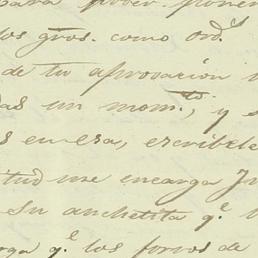 para poder poner
los gros. como ord.s
de tu aprovación
un mom.to, y
en esa, escribele
me encarga
su anchetita q.e
q.e los forros de